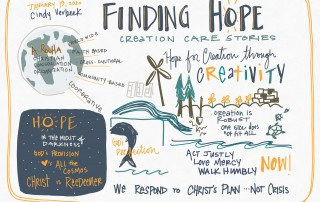 January 17, 2020
Cindy Verbeek
FINDING HOPE
CREATION CARE STORIES
A ROCHA
CHRISTIAN
CONSERVATION
ORGANIZATION
FAITH BASED
CROSS-CULTURAL
COMMUNITY-BASED
COOPERATIVE
Hope for Creation through
CREATIVITY
CREATION IS
ROBUST
ONE SIZE DOES
NOT FIT ALL
HOPE
IN THE MIDST OF
DARKNESS
GOD'S PROVISION
ALL THE
COSMOS
CHRIST AS REDEEMER
GOD'S
PROTECTION
ACT JUSTLY
LOVE MERCY
WALK HUMBLY
NOW!
WE RESPOND TO CHRIST'S PLAN ...NOT CRISIS